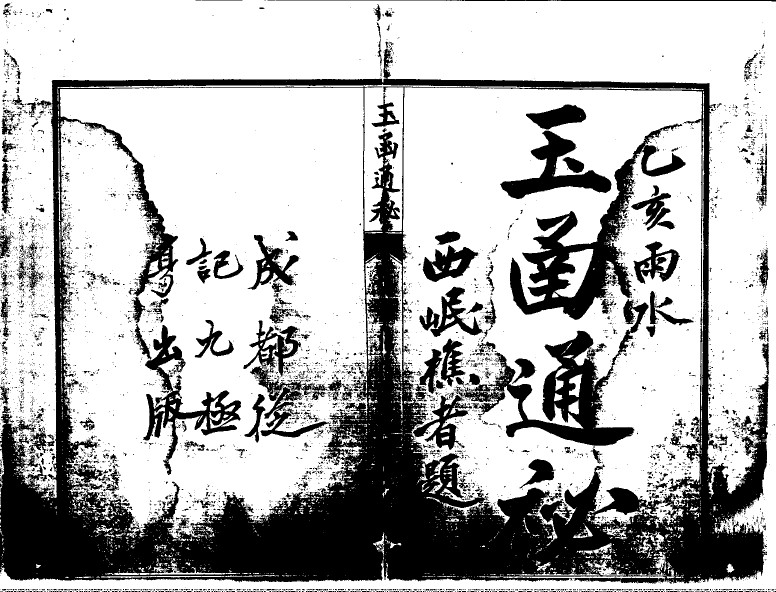 乙亥雨水
玉函通秘
西岷樵者題
玉函通秘
成都從
記九極
出版